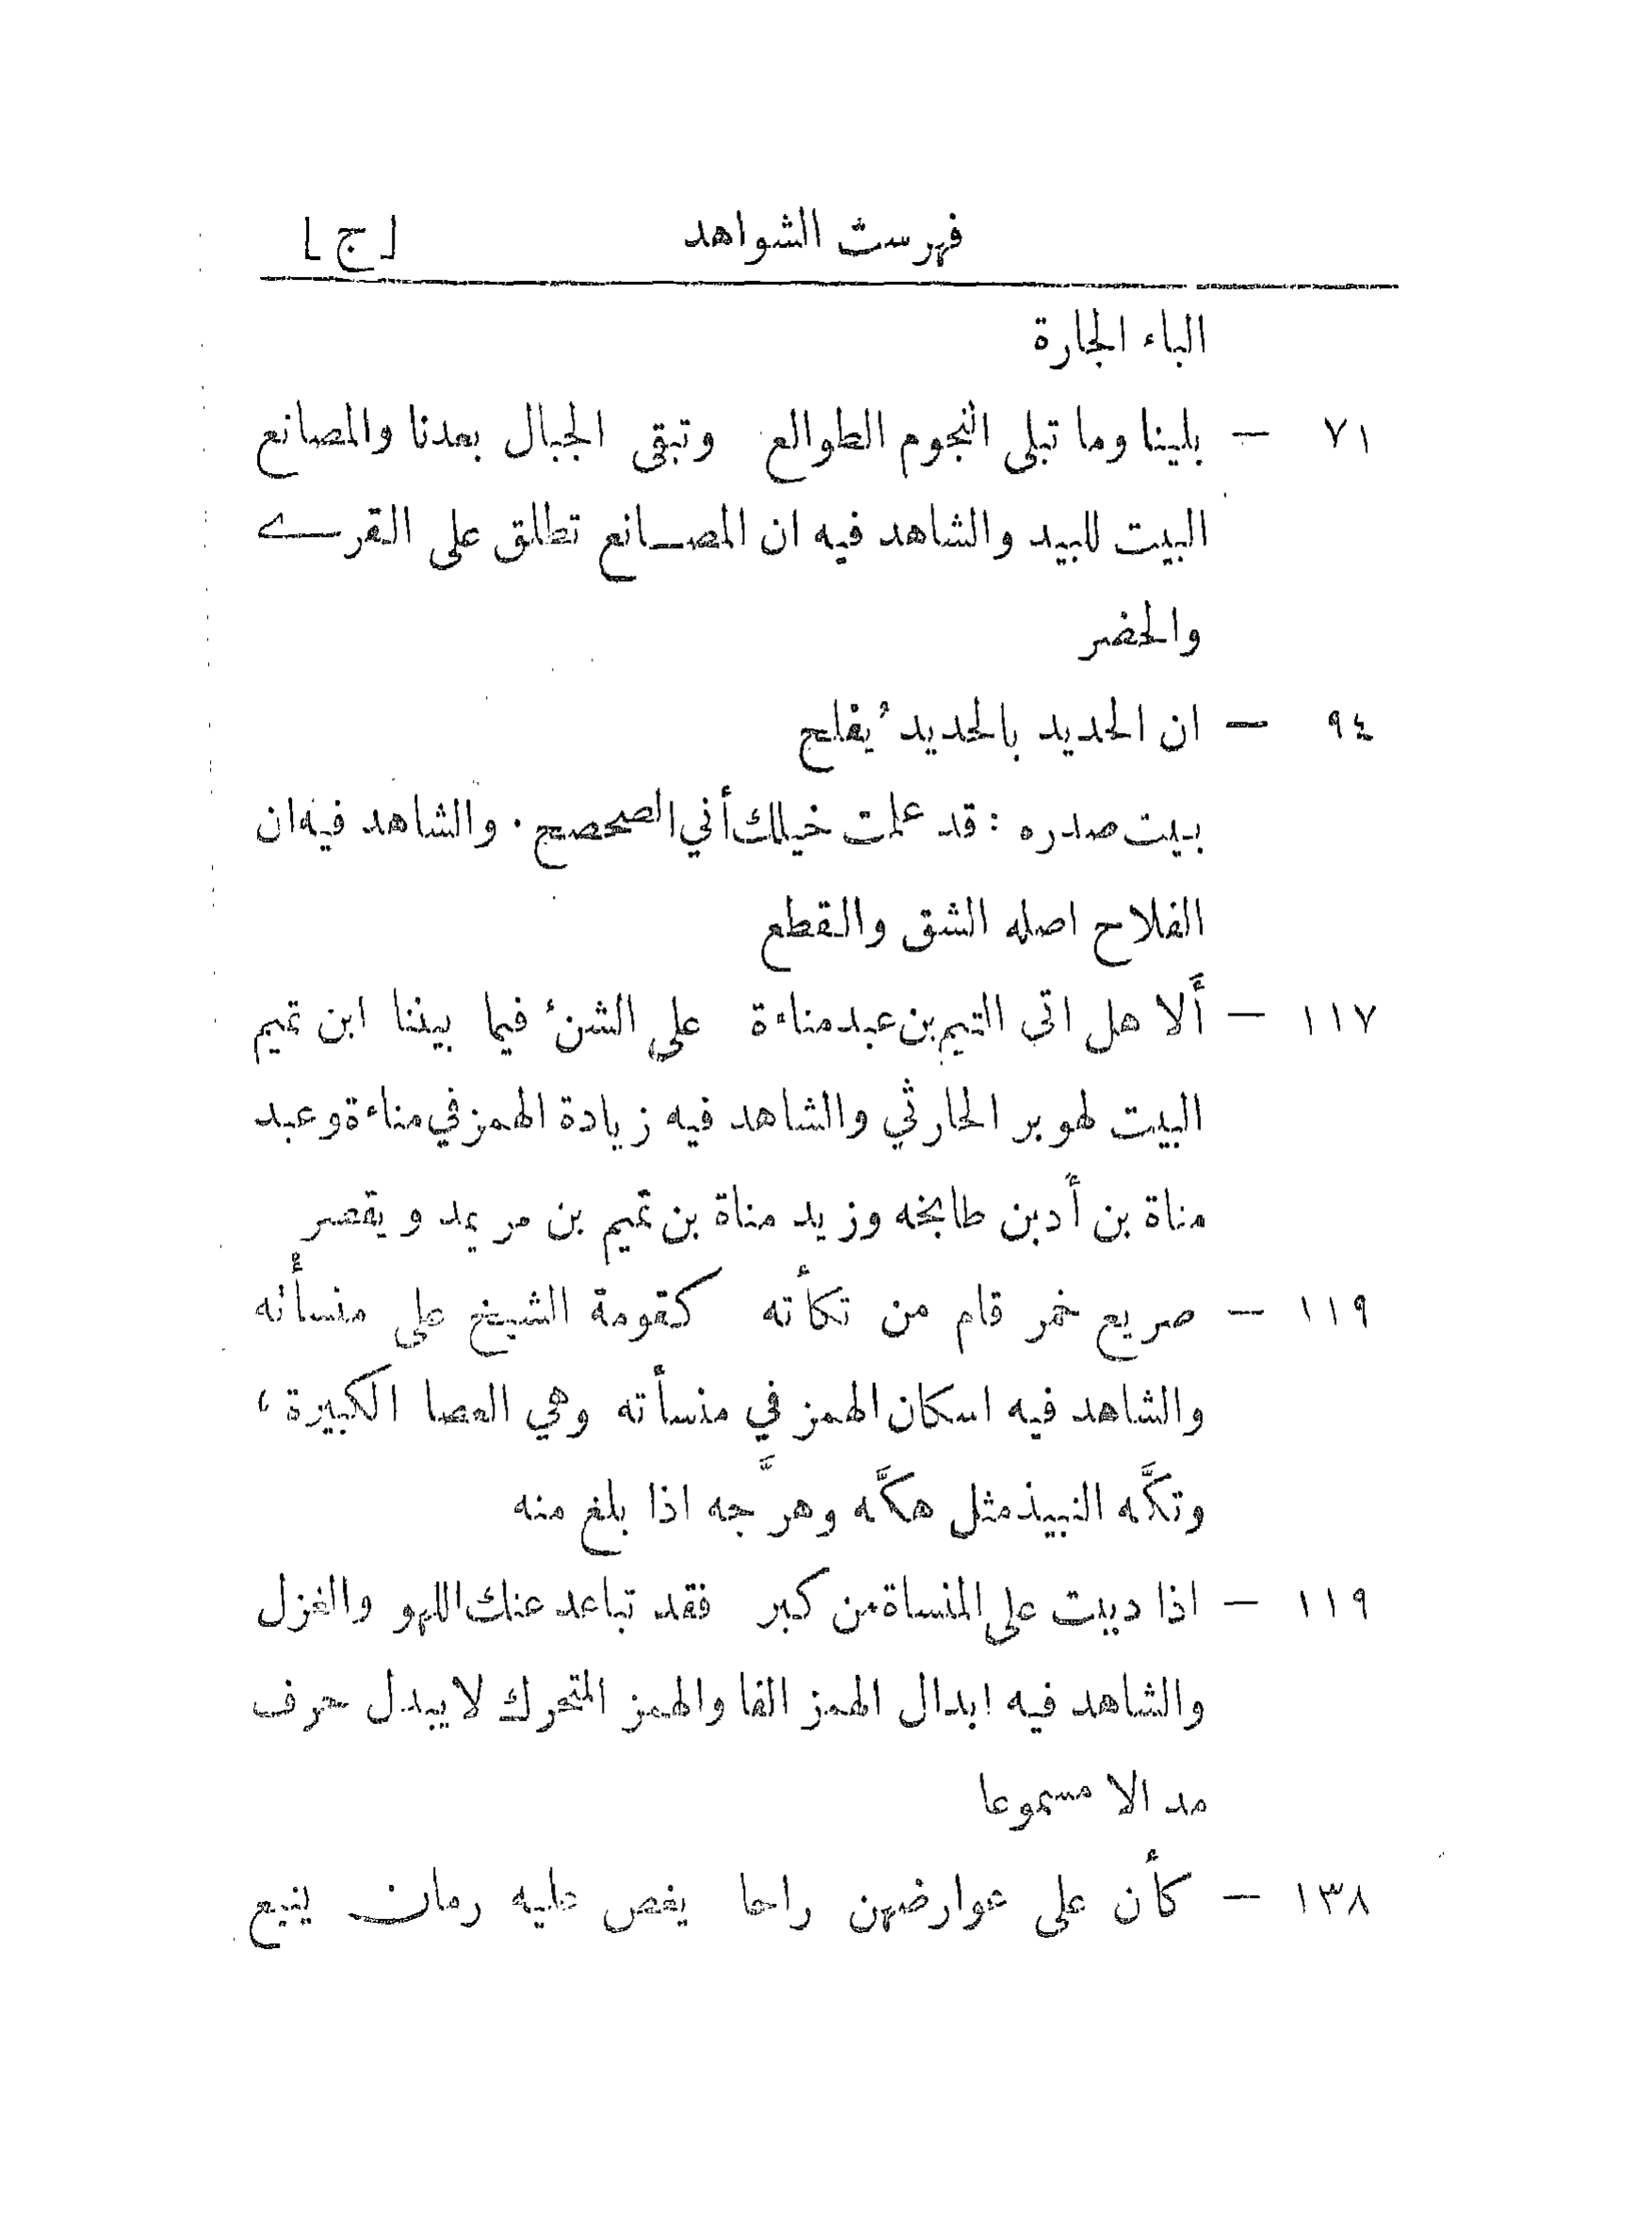 فهرست الشواهد [ج]
الباء الجارة
٧١ — بلينا وما تبلى النجوم الطوالع وتبقى الجبال بعدنا والمصانع
البيت للبيد والشاهد فيه ان المصانع تطلق على القرے
والحضر
٩٤ — ان الحديد بالحديد ُيفلح
بيت صدره : قد علمت خيلك أني الصحصح . والشاهد فيه ان
الفلاح اصله الشق والقطع
١١٧ — أَلا هل اتى التيم بن عبد مناءة على الشنء فيما بيننا ابن تميم
البيت لهوبر الحارثي والشاهد فيه زيادة الهمز في مناءة وعبد
مناة بن أُد بن طابخه وزيد مناة بن تميم بن مر يمد ويقصر
١١٩ — صريع خمر قام من تكأته كقومة الشيخ على منسأْته
والشاهد فيه اسكان الهمز في منسأته وهي العصا الكبيرة ،
وتكَّه النبيذ مثل هكَّه وهرَّجه اذا بلغ منه
١١٩ — اذا دببت على المنساة من كبر فقد تباعد عنك اللهو والغزل
والشاهد فيه ابدال الهمز الفا والهمز المتحرك لا يبدل حرف
مد الا مسموعا
١٣٨ — كأن على عوارضهن راحا يغص عليه رمان ينيع